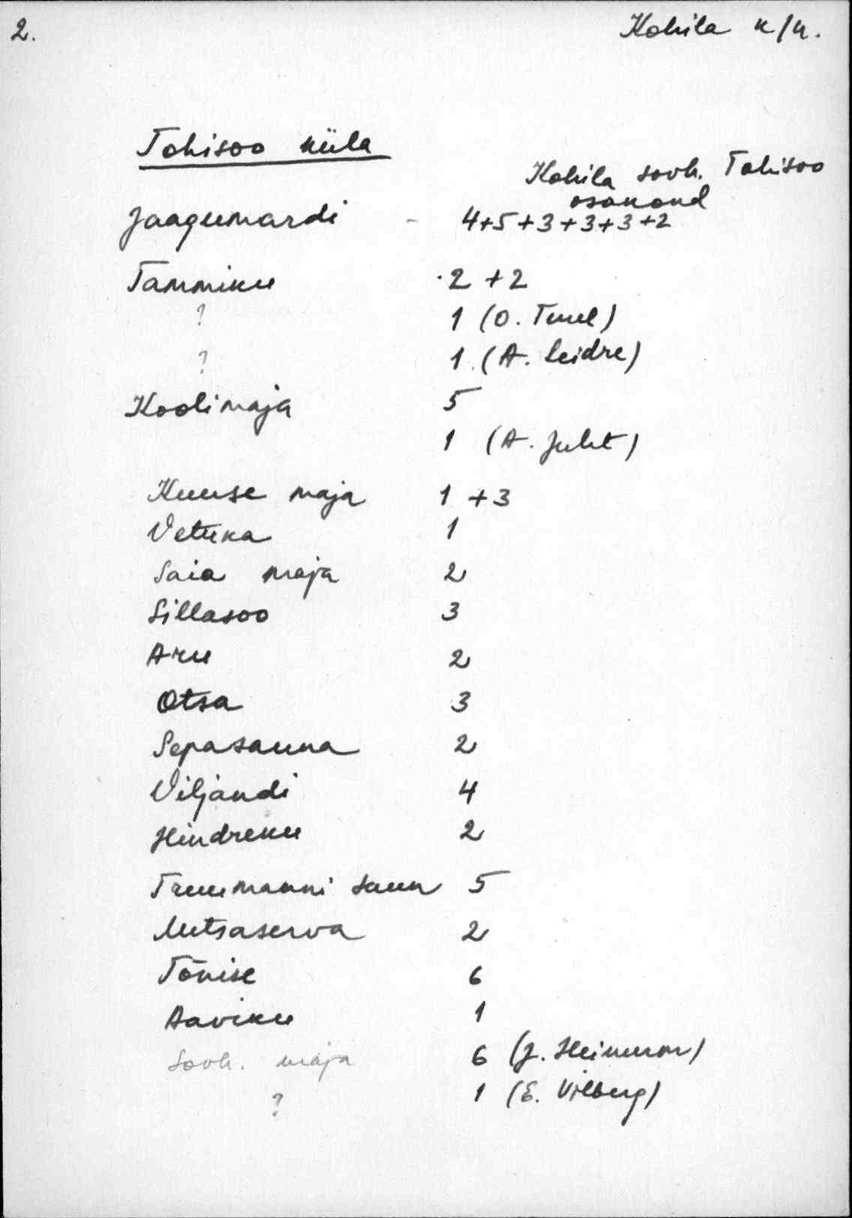 2.
Kohila k/n.
Tohisoo küla
Kohila sovh. Tohisoo
osakond
Jaagumardi - 4+5+3+3+3+2
Tammiku 2 +2
? 1 (O. Tuul)
? 1 (A. Leidre)
Koolimaja 5
1 (A. Juht)
Kuuse maja 1 +3
Vetuka 1
Saia maja 2
Sillasoo 3
Aru 2
Otsa 3
Sepasauna 2
Viljandi 4
Hindreku 2
Truumanni saun 5
Metsaserva 2
Tõnise 6
Aaviku 1
Sovh. maja 6 (J.
? 1 (E. Vilberg)